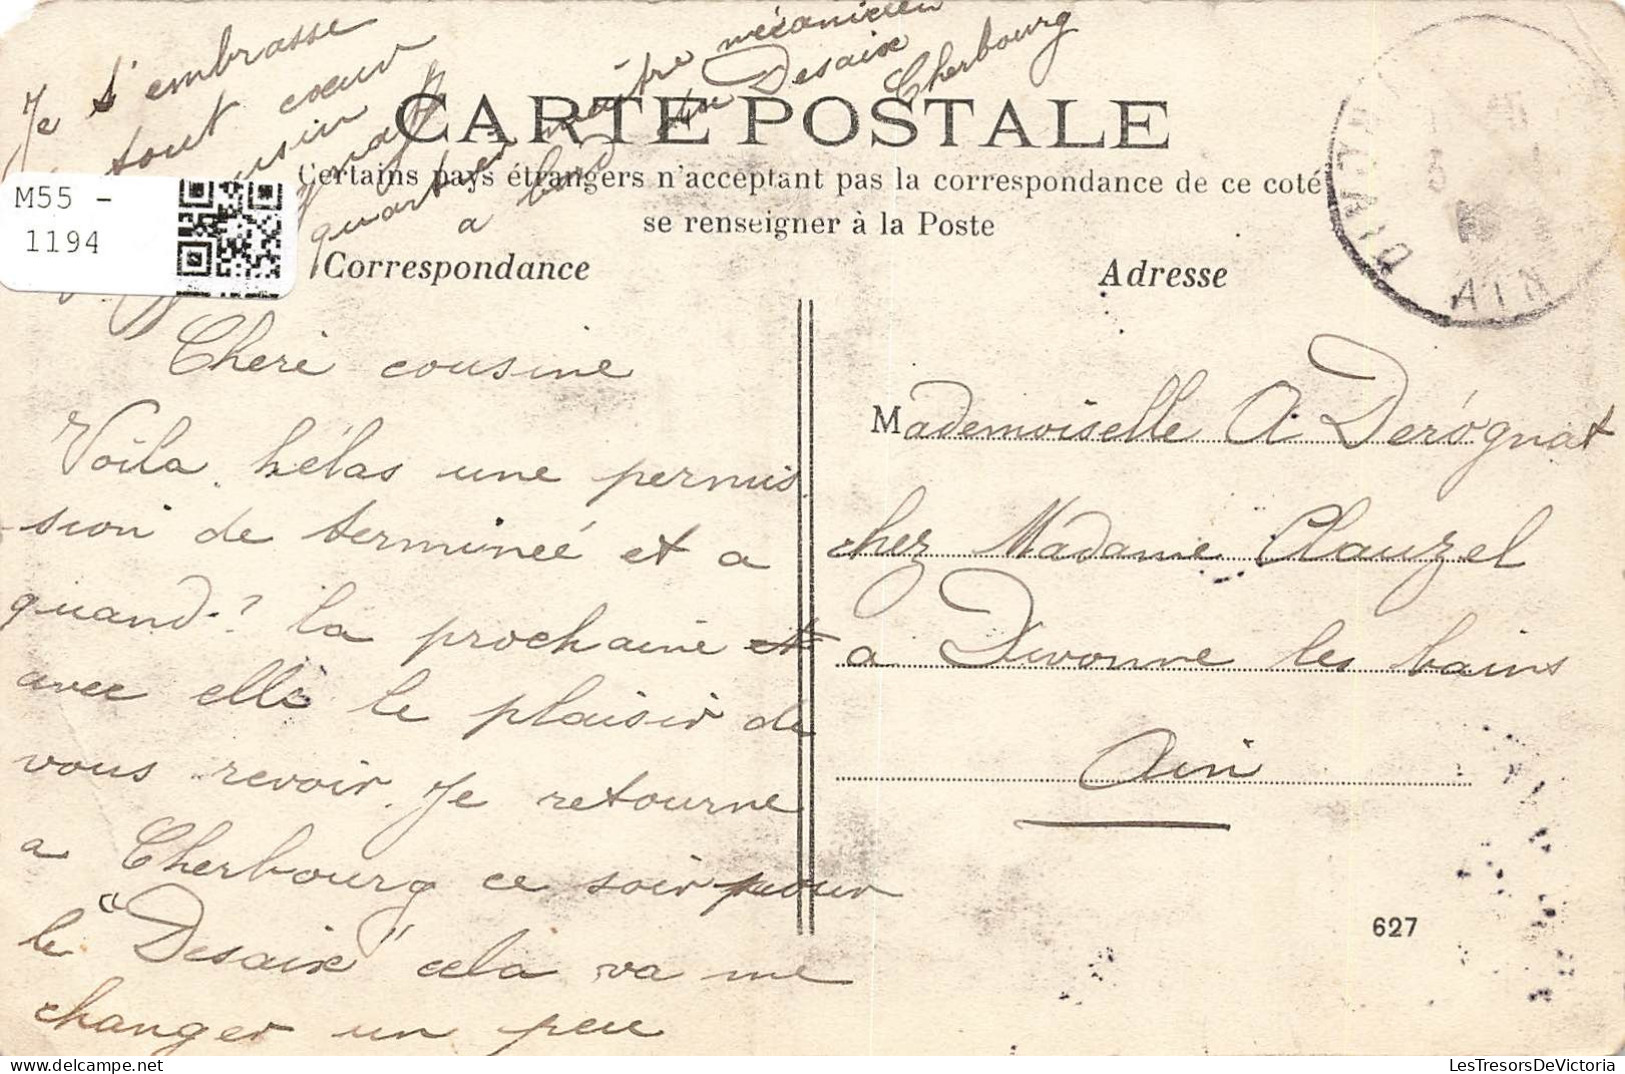 Je t'embrasse
tout coeur
cousin
quartier maître mécanicien
a bord du Desaix
Cherbourg
CARTE POSTALE
Certains pays étrangers n'acceptant pas la correspondance de ce coté
se renseigner à la Poste
M55 -
1194
Correspondance
Cheri cousine
Voila hélas une permis
sion de termineé et a
quand? la prochaine et
avec elle le plaisir de
vous revoir. Je retourne
a Cherbourg ce soir pour
le "Desaix" cela va me
changer un peu
Adresse
Mademoiselle A Derógnat
chez Madame Clauzel
a Divonne les bains
Ain
627
AIN
LesTresorsDeVictoria